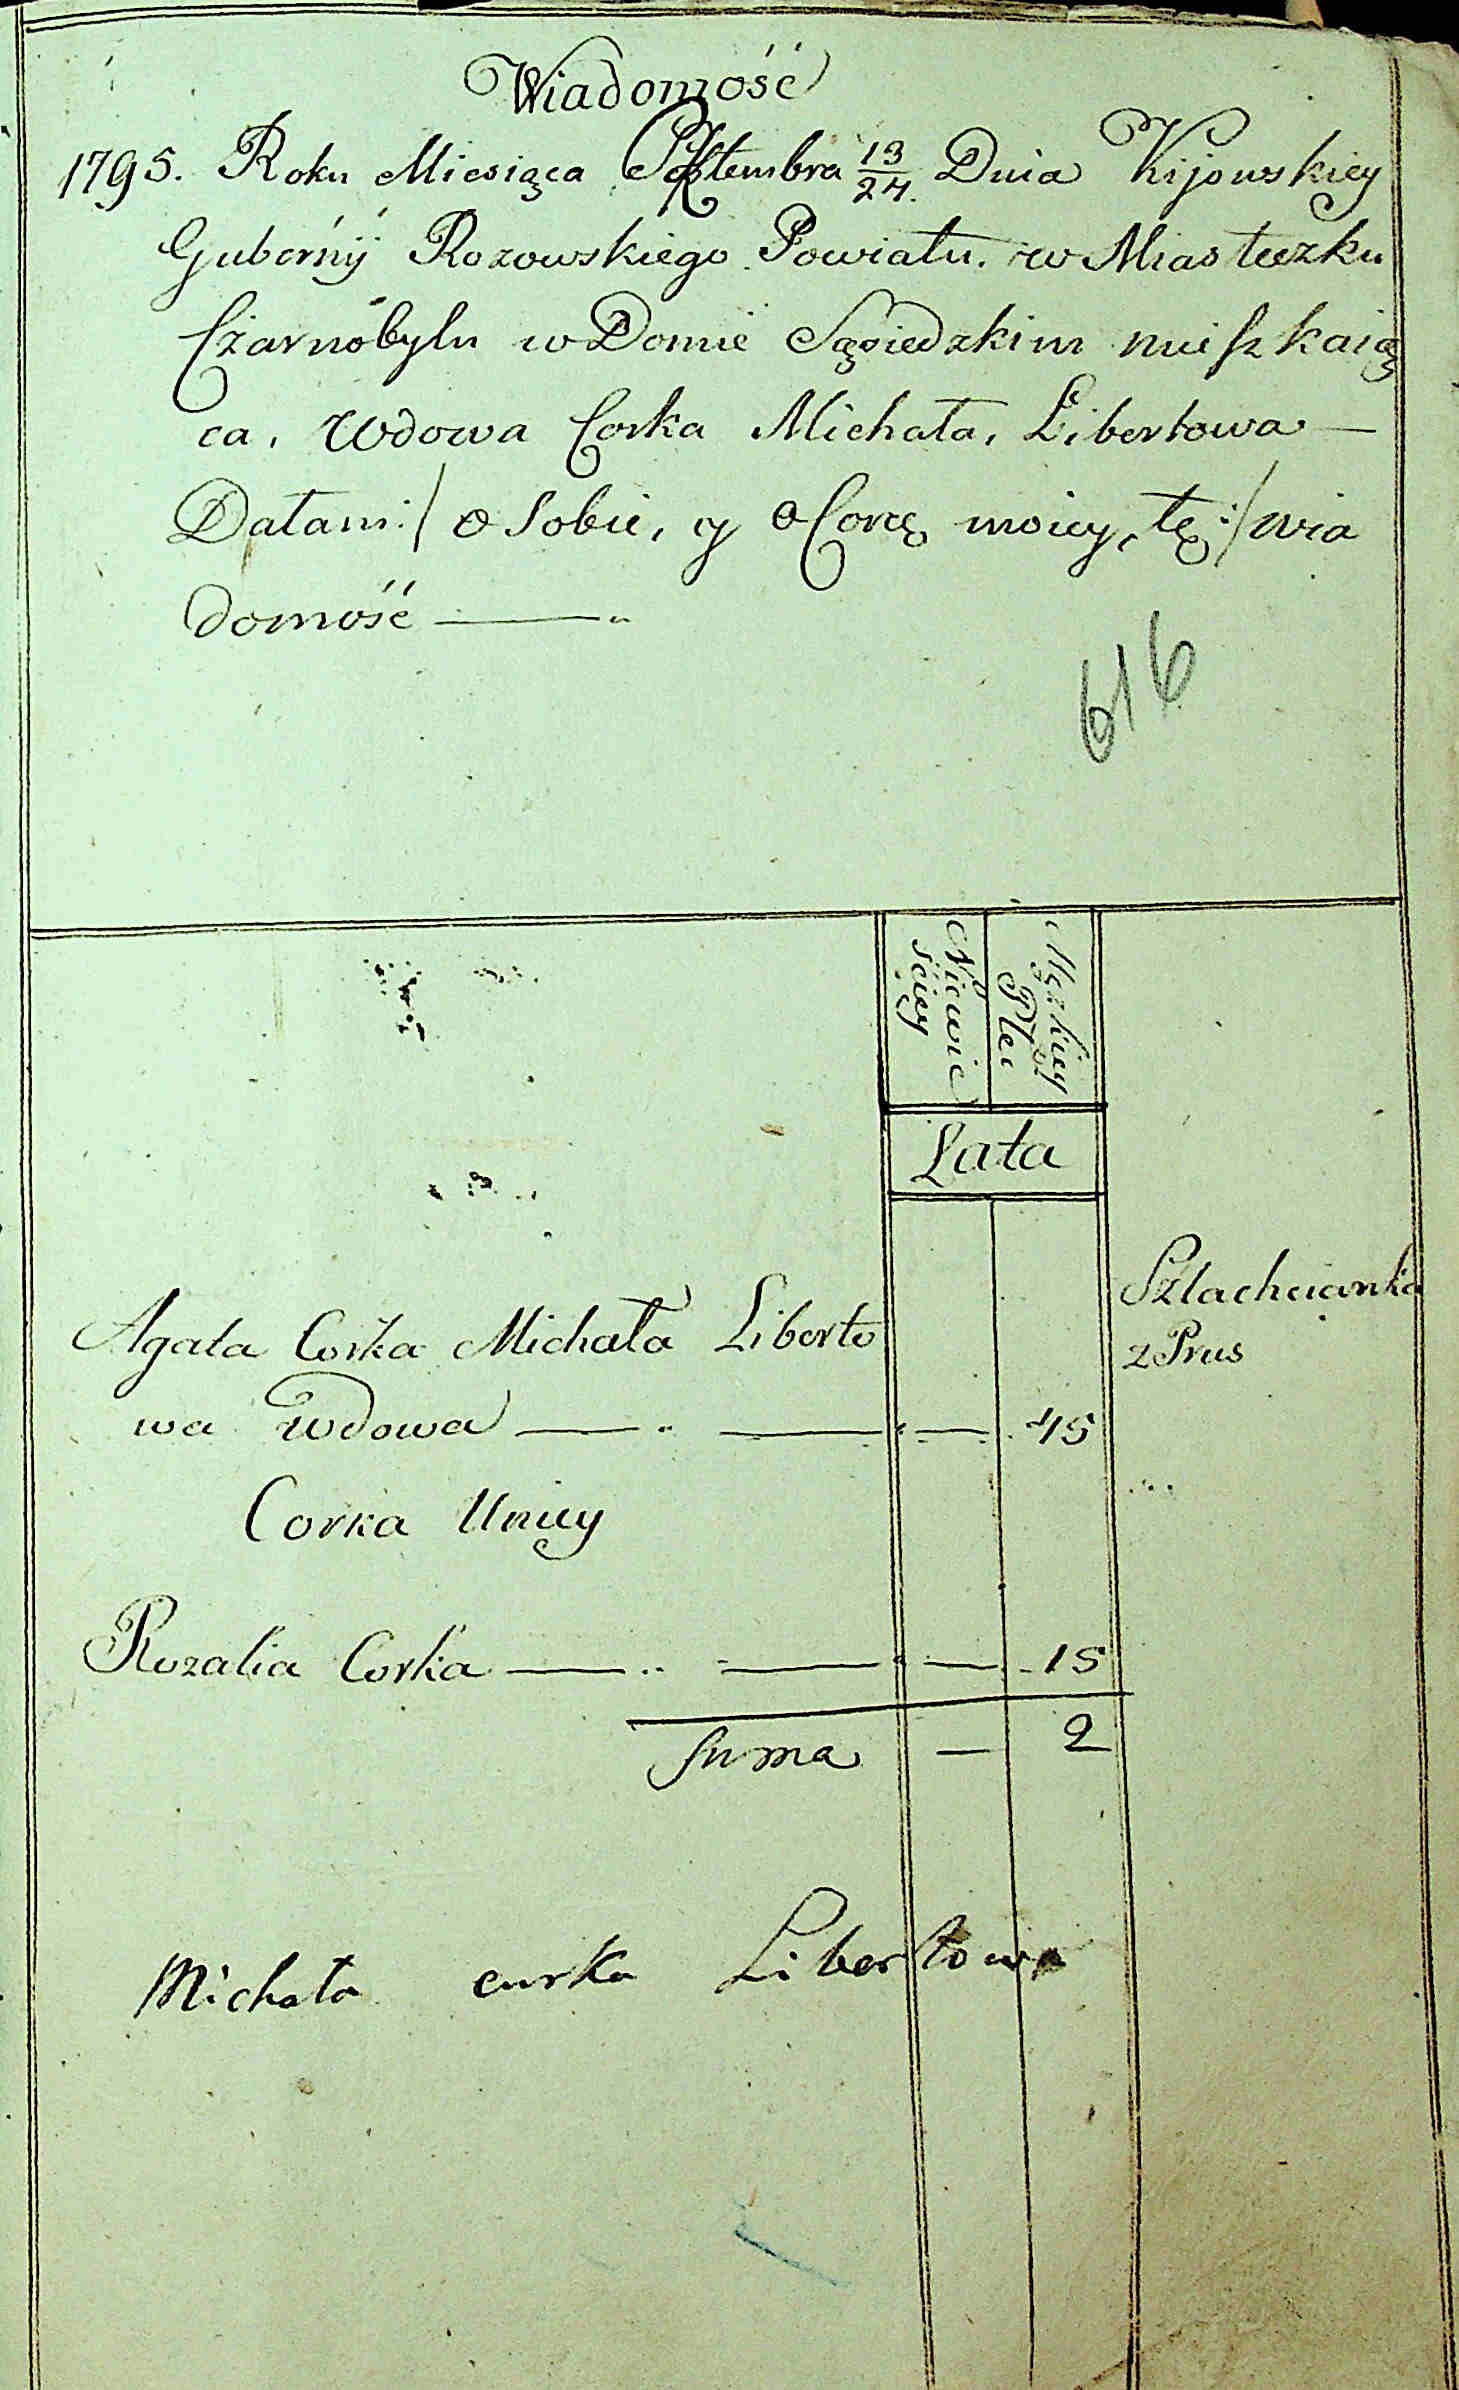 Wiadomość
1795. Roku Miesiąca Septembra 13/24. Dnia Kijowskiey
Guberńij Rozowskiego Powiatu. w Miasteczku
Czarnobylu w Domie Sąsiedzkim mieszkaią
ca, Wdowa Corka Michała, Libertowa —
Dałam :/ o Sobie, y o Corcę moiey, tę :/ wia
domość —
616
Męzkiey
Płci
Niewie
ściey
Lata
Szlachcianka
z Prus
Agata Corka Michała Liberto
wa Wdowa — — — 45
Corka Uniey
Rozalia Corka — — — 15
Suma — 2
Michała curka Libertowa